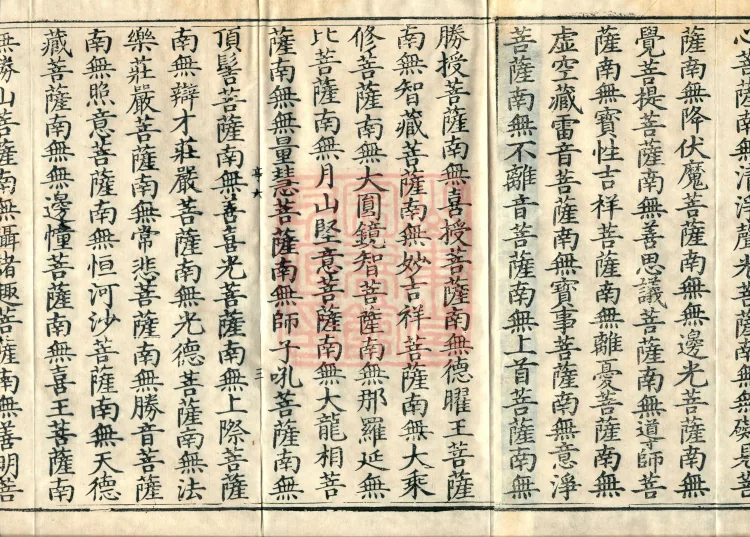 心菩薩南無清淨光菩薩南無無礙菩
薩南無降伏魔菩薩南無無邊光菩薩南無
覺菩提菩薩南無善思議菩薩南無導師菩
薩南無寶性吉祥菩薩南無離憂菩薩南無
虛空藏雷音菩薩南無寶事菩薩南無意淨
菩薩南無不離音菩薩南無上首菩薩南無
勝授菩薩南無喜授菩薩南無德曜王菩薩
南無智藏菩薩南無妙吉祥菩薩南無大乘
修菩薩南無大圓鏡智菩薩南無那羅延無
比菩薩南無月山堅意菩薩南無大龍相菩
薩南無無量慧菩薩南無師子吼菩薩南無
六 三
頂髻菩薩南無善喜光菩薩南無上際菩薩
南無辯才莊嚴菩薩南無光德菩薩南無法
樂莊嚴菩薩南無常悲菩薩南無勝音菩薩
南無照意菩薩南無恒河沙菩薩南無天德
藏菩薩南無無邊幢菩薩南無喜王菩薩南
無勝山菩薩南無攝諸趣菩薩南無善明菩